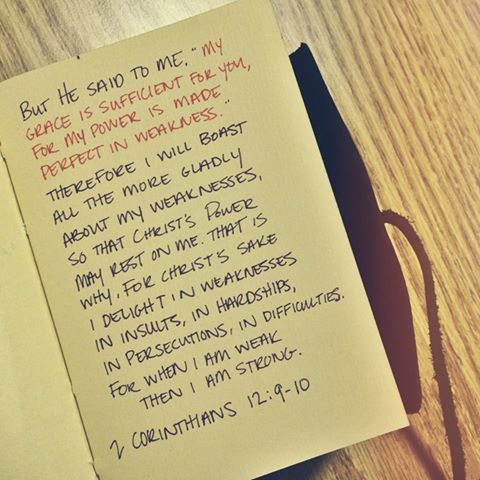 BUT HE SAID TO ME, "MY
GRACE IS SUFFICIENT FOR YOU,
FOR MY POWER IS MADE
PERFECT IN WEAKNESS."
THEREFORE I WILL BOAST
ALL THE MORE GLADLY
ABOUT MY WEAKNESSES,
SO THAT CHRIST'S POWER
MAY REST ON ME. THAT IS
WHY, FOR CHRIST'S SAKE
I DELIGHT IN WEAKNESSES
IN INSULTS, IN HARDSHIPS,
IN PERSECUTIONS, IN DIFFICULTIES.
FOR WHEN I AM WEAK
THEN I AM STRONG.
2 CORINTHIANS 12:9-10